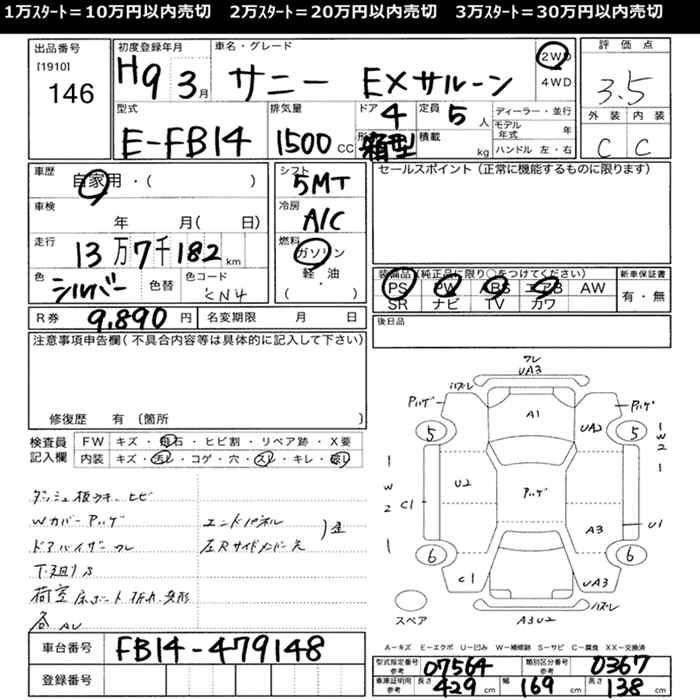 1万ｽﾀｰﾄ＝10万円以内売切　2万ｽﾀｰﾄ＝20万円以内売切　3万ｽﾀｰﾄ＝30万円以内売切
出品番号
[1910]
146
初度登録年月
H9 3月
車名・グレード
サニー EXサルーン
2WD
4WD
評価点
3.5
外装 内装
C C
型式
E-FB14
排気量
1500 CC
ドア
4
定員
5 人
形
箱型
積載
kg
ディーラー・並行
モデル年式 年
ハンドル 左・右
車歴
自家用・( )
車検
年 月( 日)
走行
13万7千182 km
色
シルバー
色替
色コード
KN4
シフト
5MT
冷房
A/C
燃料
ガソリン
軽・油
( ・ )
セールスポイント（正常に機能するものに限ります）
装備品(純正品に限り○をつけてください)
PS PW ABS エアB AW
SR ナビ TV カワ
新車保証書
有・無
R券 9,890 円
名変期限 月 日
後日品
注意事項申告欄(不具合内容等は具体的に記入して下さい)
修復歴 有 〔箇所 〕
検査員
記入欄
FW キズ・飛石・ヒビ割・リペア跡・X要
内装 キズ・汚レ・コゲ・穴・スレ・キレ・
ダッシュ板ウキ－ヒビ
Wカバーハゲ
ドアバイザーワレ
下廻りS
荷室
エンドパネル
歪
ワレ
UA3
ハズレ
ハゲ
ハゲ
A1
5
UA2
5
1
W
2
1
U2
ハゲ
1
W
2
1
C1
A3
U1
6
6
C1
UA3
ハズレ
A3U2
スペア
A－キズ E－エクボ U－凹み W－補修跡 S－サビ C－腐食 XX－交換済
車台番号 FB14-479148
登録番号
型式指定番号
参考
07564
類別区分番号
参考
0367
車庫証明用
参考
長さ 429 cm
幅 169 cm
高さ 138 cm